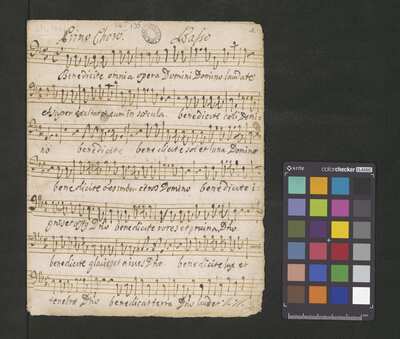 Primo Choro. Basso
Benedicite omnia opera Domini Domino laudate
et super exaltate eum in sæcula. benedicite cæli Domi
no benedicite benedicite sol et luna Domino
benedicite omnis imber et ros Domino benedicite i
gnis et Dno benedicite rores et pruina Dno
benedicite glacies et nives Dno benedicite lux et
tenebræ Dno benedicat terra Dno
x-rite colorchecker CLASSIC